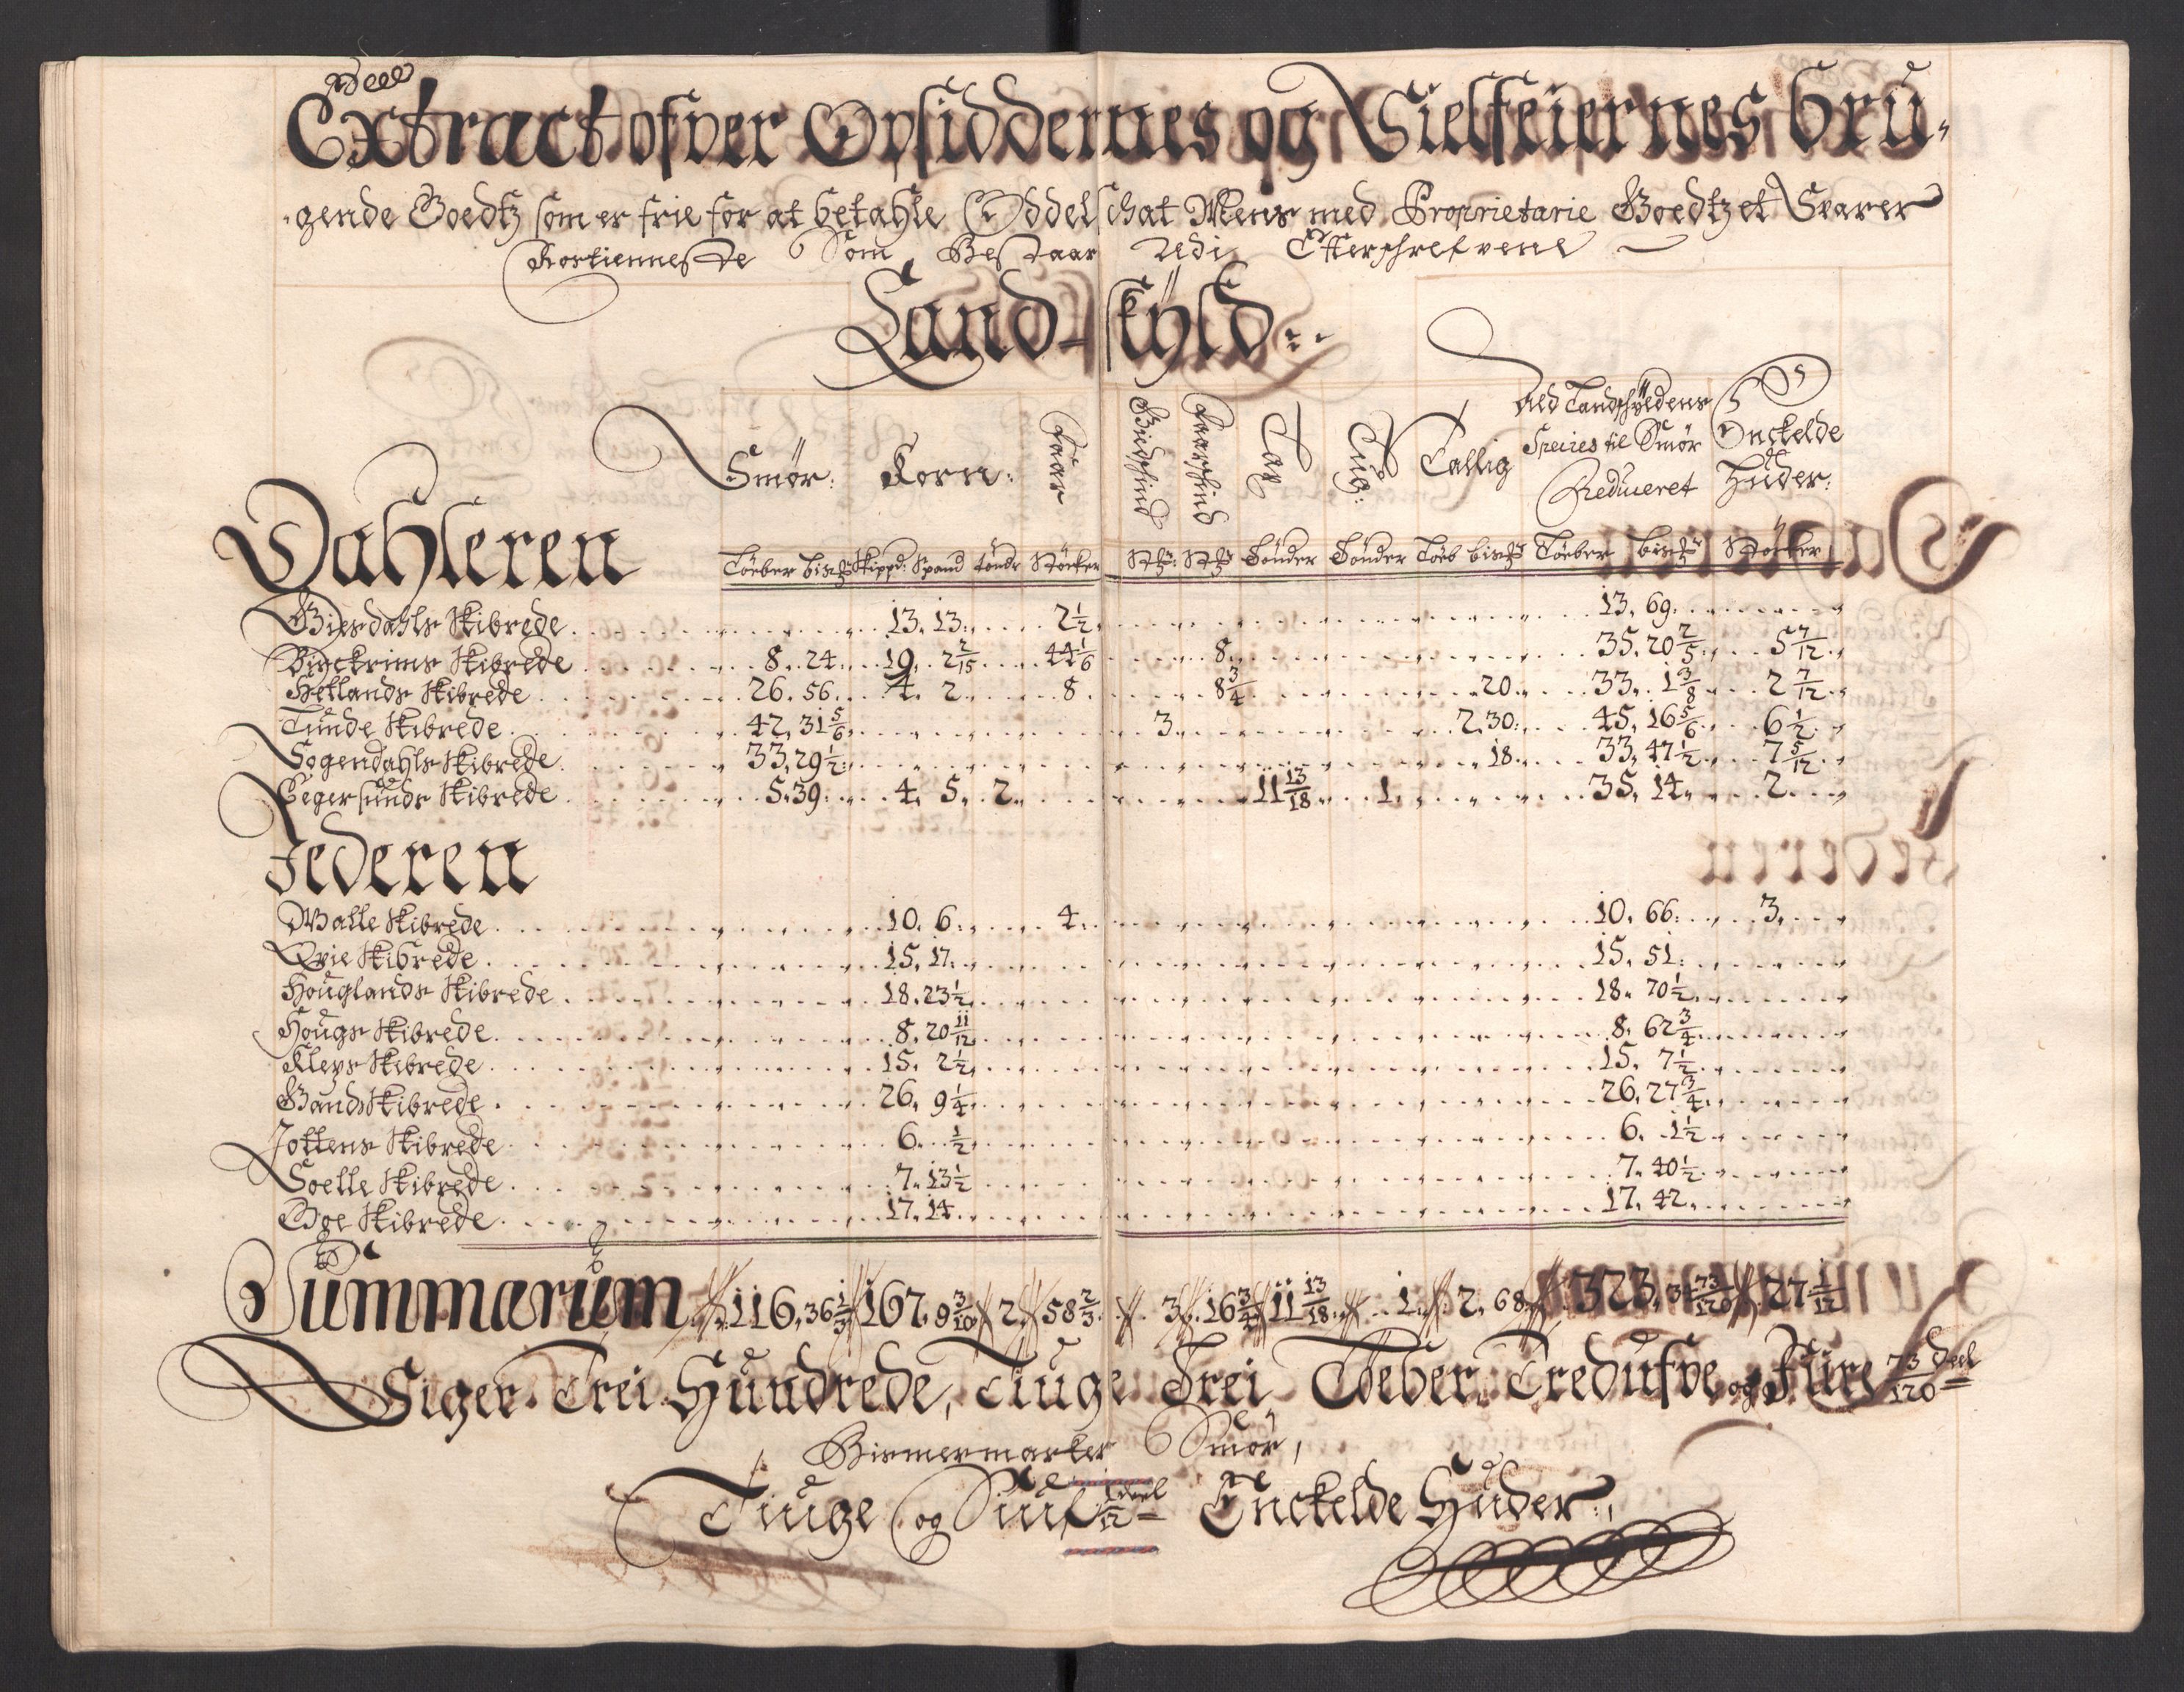 Extract ofver Opsiddernes og Sielfeiernes bru-
gende Goedtz som er frie for at betahle Oddelschat Mens med Proprietarie Goedtzet Svarer
Rostienneste Som Bestaar Udi Effterschrefvene
Land-skÿld
Smør: Korn: Faar Giedschind Faarschind Sax Tallig Ald Landschÿldens Speties til Smør Reduceret Enckelde Huder:
Dahleren
Giesdahls Skibrede 13. 13. 2 1/2 13. 69.
Birckrims Skibrede 8. 24. 19. 2 2/15 44 1/6 8. 35. 20 2/5 5 7/12
Hetlands Skibrede 26. 56. 4. 2. 8 8 3/4 20 33. 1 3/8 2 7/12
Lunde Skibrede 42. 31 5/6 3. 2. 30. 45. 16 5/6 6 1/2
Sogendahls Skibrede 33. 29 1/2 18. 33. 47 1/2 7 5/12
Eegersunds Skibrede 5. 39. 4. 5. 2. 11 13/18 1. 35. 14. 2.
Jederen
Walle Skibrede 10. 6. 4. 10. 66. 3.
Qvie Skibrede 15. 17. 15. 51.
Houglands Skibrede 18. 23 1/2 18. 70 1/2
Hougs Skibrede 8. 20 11/12 8. 62 3/4
Kleps Skibrede 15. 2 1/2 15. 7 1/2
Gands Skibrede 26. 9 1/4 26. 27 3/4
Jottens Skibrede 6. 1/2 6. 1 1/2
Soelle Skibrede 7. 13 1/2 7. 40 1/2
Goe Skibrede 17. 14. 17. 42.
Summarum 116. 36 1/3 167. 9 3/10 2. 58 2/3 3. 16 3/4 11 13/18 1. 2. 68. 323. 34 73/120 27 1/12
Siger Trei Hundrede, Tiuge Trei Tøeber Tredufve og Fire 73/120 deel
Bismermarker Smør,
Tiuge og Siuf 1/12 deel Enckelde Huder